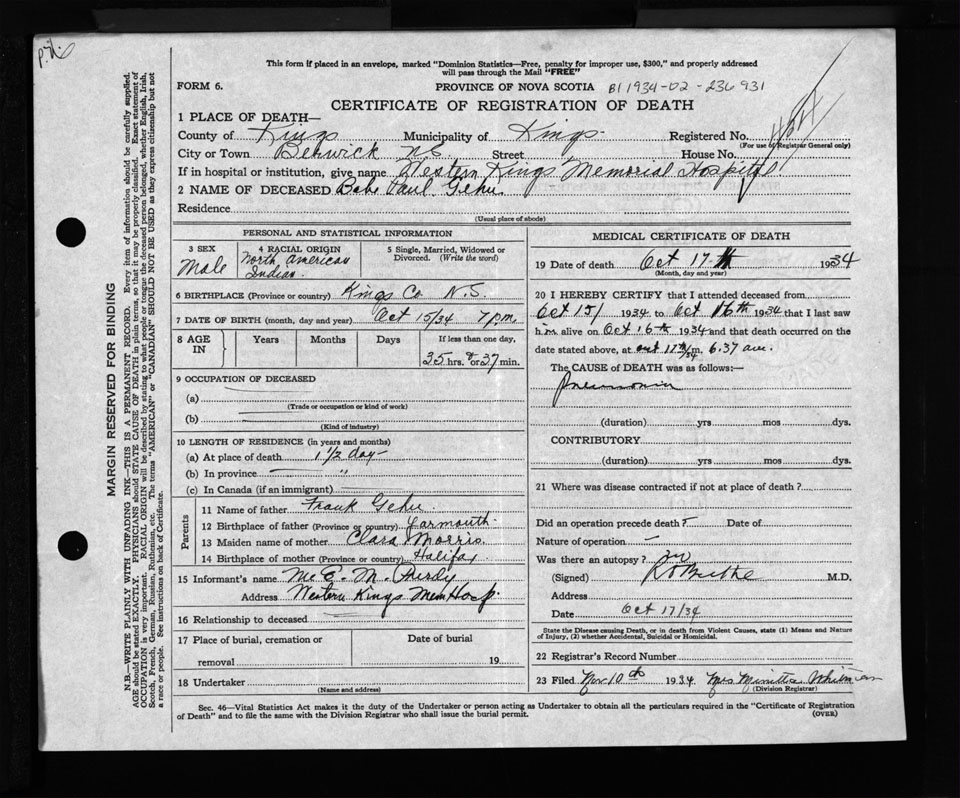 This form if placed in an envelope, marked "Dominion Statistics—Free, penalty for improper use, $300," and properly addressed
will pass through the Mail "FREE"
FORM 6. PROVINCE OF NOVA SCOTIA B11934-02-236931
CERTIFICATE OF REGISTRATION OF DEATH
1 PLACE OF DEATH—
County of Kings Municipality of Kings Registered No.
(For use of Registrar General only)
City or Town Berwick N.S. Street House No.
If in hospital or institution, give name Western Kings Memorial Hospital
2 NAME OF DECEASED Babe Paul Gehue
Residence
(Usual place of abode)
PERSONAL AND STATISTICAL INFORMATION
3 SEX
Male
4 RACIAL ORIGIN
North American
Indian
5 Single, Married, Widowed or
Divorced. (Write the word)
6 BIRTHPLACE (Province or country) Kings Co N.S.
7 DATE OF BIRTH (month, day and year) Oct 15/34 7 p.m.
8 AGE
IN
Years Months Days If less than one day,
35 hrs. or 37 min.
9 OCCUPATION OF DECEASED
(a)
(Trade or occupation or kind of work)
(b)
(Kind of industry)
10 LENGTH OF RESIDENCE (in years and months)
(a) At place of death 1 1/2 day
(b) In province "
(c) In Canada (if an immigrant)
Parents
11 Name of father Frank Gehue
12 Birthplace of father (Province or country) Yarmouth
13 Maiden name of mother Clara Morris
14 Birthplace of mother (Province or country) Halifax
15 Informant's name M.
Address Western Kings Mem Hosp.
16 Relationship to deceased
17 Place of burial, cremation or
removal
Date of burial
19
18 Undertaker
(Name and address)
MEDICAL CERTIFICATE OF DEATH
19 Date of death Oct 17th 1934
(Month, day and year)
20 I HEREBY CERTIFY that I attended deceased from
Oct 15 1934 to Oct 16th 1934 that I last saw
him alive on Oct 16th 1934 and that death occurred on
date stated above, at Oct 17th/34 m. 6.37 am.
The CAUSE of DEATH was as follows:—
Pneumonia
(duration) yrs mos dys.
CONTRIBUTORY
(duration) yrs. mos. dys.
21 Where was disease contracted if not at place of death?
Did an operation precede death? Date of
Nature of operation —
Was there an autopsy? no
(Signed) M.D.
Address
Date Oct 17/34
State the Disease causing Death, or in death from Violent Causes, state (1) Means and Nature
of Injury, (2) whether Accidental, Suicidal or Homicidal.
22 Registrar's Record Number
23 Filed Nov 10th 1934 Mrs Minetta Whitman
(Division Registrar)
Sec. 46—Vital Statistics Act makes it the duty of the Undertaker or person acting as Undertaker to obtain all the particulars required in the "Certificate of Registration
of Death" and to file the same with the Division Registrar who shall issue the burial permit. (OVER)
MARGIN RESERVED FOR BINDING
N.B.—WRITE PLAINLY WITH UNFADING INK—THIS IS A PERMANENT RECORD. Every item of information should be carefully supplied.
AGE should be stated EXACTLY. PHYSICIANS should STATE CAUSE OF DEATH in plain terms, so that it may be properly classified. Exact statement of
OCCUPATION is very important. RACIAL ORIGIN will be described by stating to what people or tongue the deceased person belonged, whether English, Irish,
Scotch, French, German, Russian, Ruthenian, etc. The terms "AMERICAN" or "CANADIAN" SHOULD NOT BE USED as they express citizenship but not
a race or people. See instructions on back of Certificate.